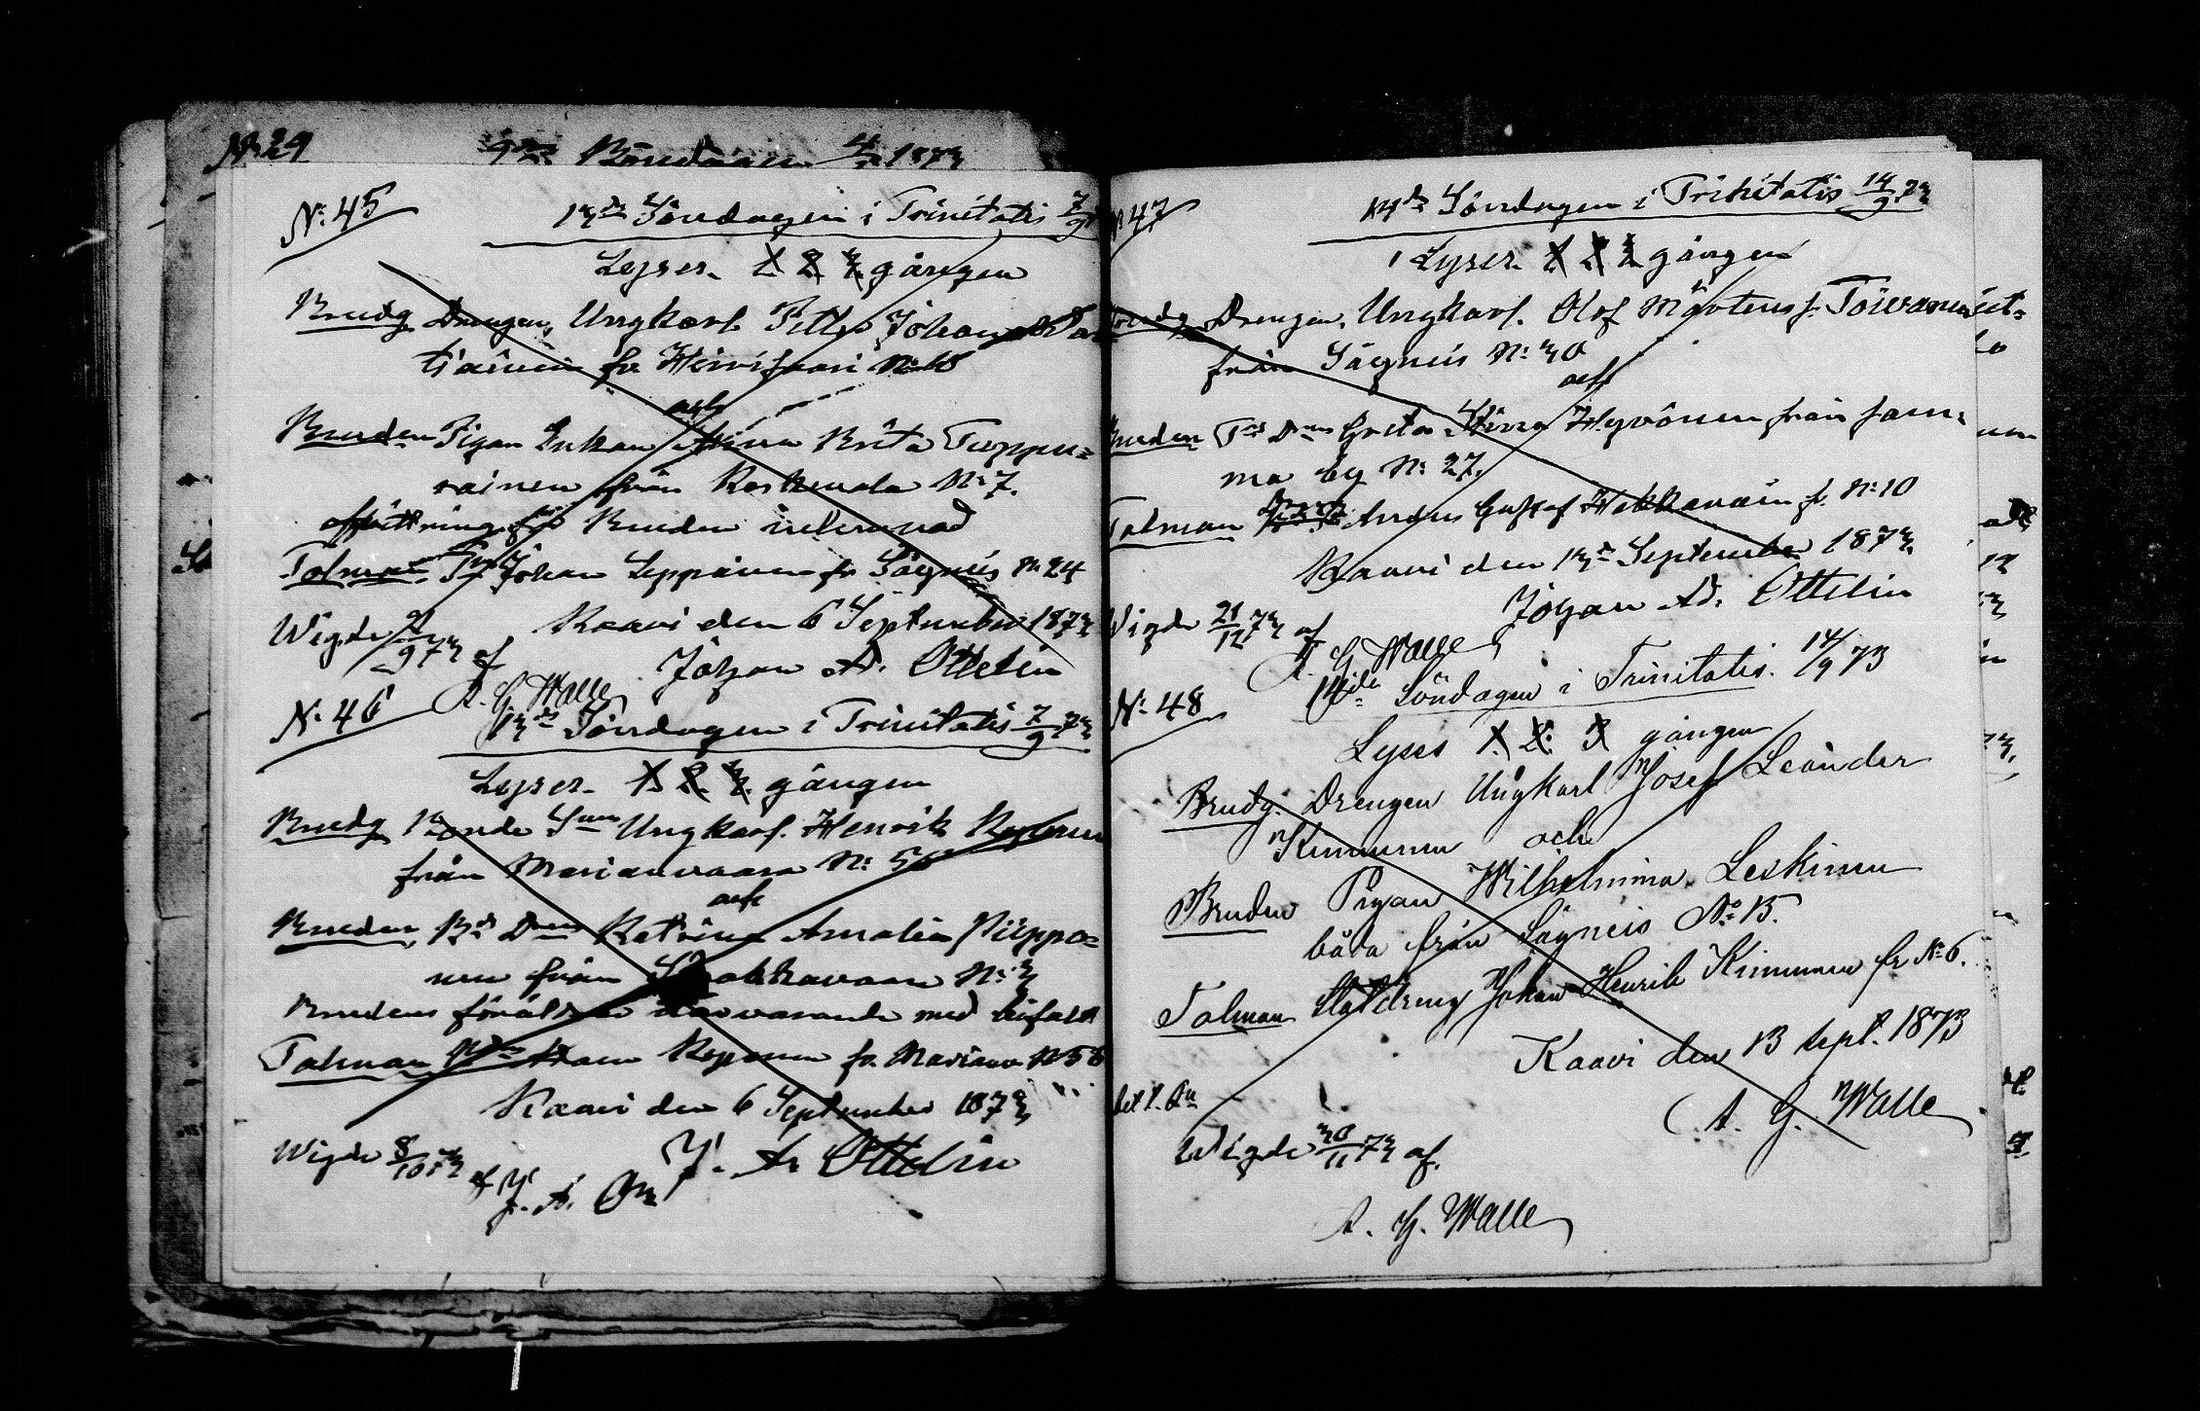 N:29 Böndagen 1873
N:45 13de Söndagen i Trinitatis 7/9
Lyses 1 2 3 gången
Brudg Drengen, Ungkarl Petter Johan
från Hirvisaari N:
och
Bruden Pigan Enkan Anna Brita Tuppu=
rainen från Koskenala N:7.
afvittring för Bruden inlemnad
Talman Johan Leppänen fr Sägneis N 24
Kaavi den 6 September 1873
Wigde 2/9 73 af Johan Ad. Ottelin
A. G. Walle
N:46 13de Söndagen i Trinitatis 7/9 73
Lyses 1 2 3 gången
Brudg Bonde Sonen Ungkarl. Henrik Reponen
från Marianvaara N: 58
och
Bruden, Bd Dren Katrina Amalia Piippo=
nen från N:3
Brudens föräldrar närvarande med bifall
Talman Reponen fr. Marianv N 58
Kaavi den 6 September 1873
J. A. Ottelin
Wigde 8/10 73 af J. A. On
N:47 14de Söndagen i Trinitatis 14/9 73
Lyses 1 2 3 gången
Brudg Drengen, Ungkarl. Olof Mårtensf. Toivanen
från Sägneis N: 30
och
Bruden Greta Stina Hyvönen från
ma by N: 27.
Talman Anders Gustaf Hakkarain fr. N:10
Kaavi den 13de September 1873.
Johan Ad. Ottelin
Wigde 21/12 73 af
A. G. Walle
N:48 14de Söndagen i Trinitatis. 14/9 73
Lyses 1. 2. 3 gången
Brudg. Drengen Ungkarl Josef Leander
Kinnunen och
Bruden Pigan Wilhelmina Leskinen
båda från Sägneis No 15.
Talman Statdreng Johan Henrik Kinnunen fr No 6.
Kaavi den 13 Sept. 1873
A. G. Walle
Wigde 30/11 73 af.
A. G. Walle